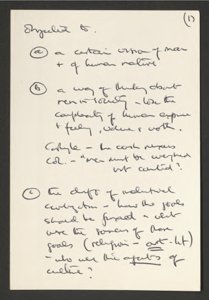 (1)
Objected to.
(a) a certain vision of man
+ of human nature
(b) a way of thinking about
men in society – how the
complexity of human experience
+ feeling, value + worth.
Carlyle – the cash nexus
Col. – "men must be weighed
not counted".
(c) the drift of industrial
civilization – how the goals
should be framed + what
were the sources of these
goals (religion – art – life)
– who were the agents of
culture?